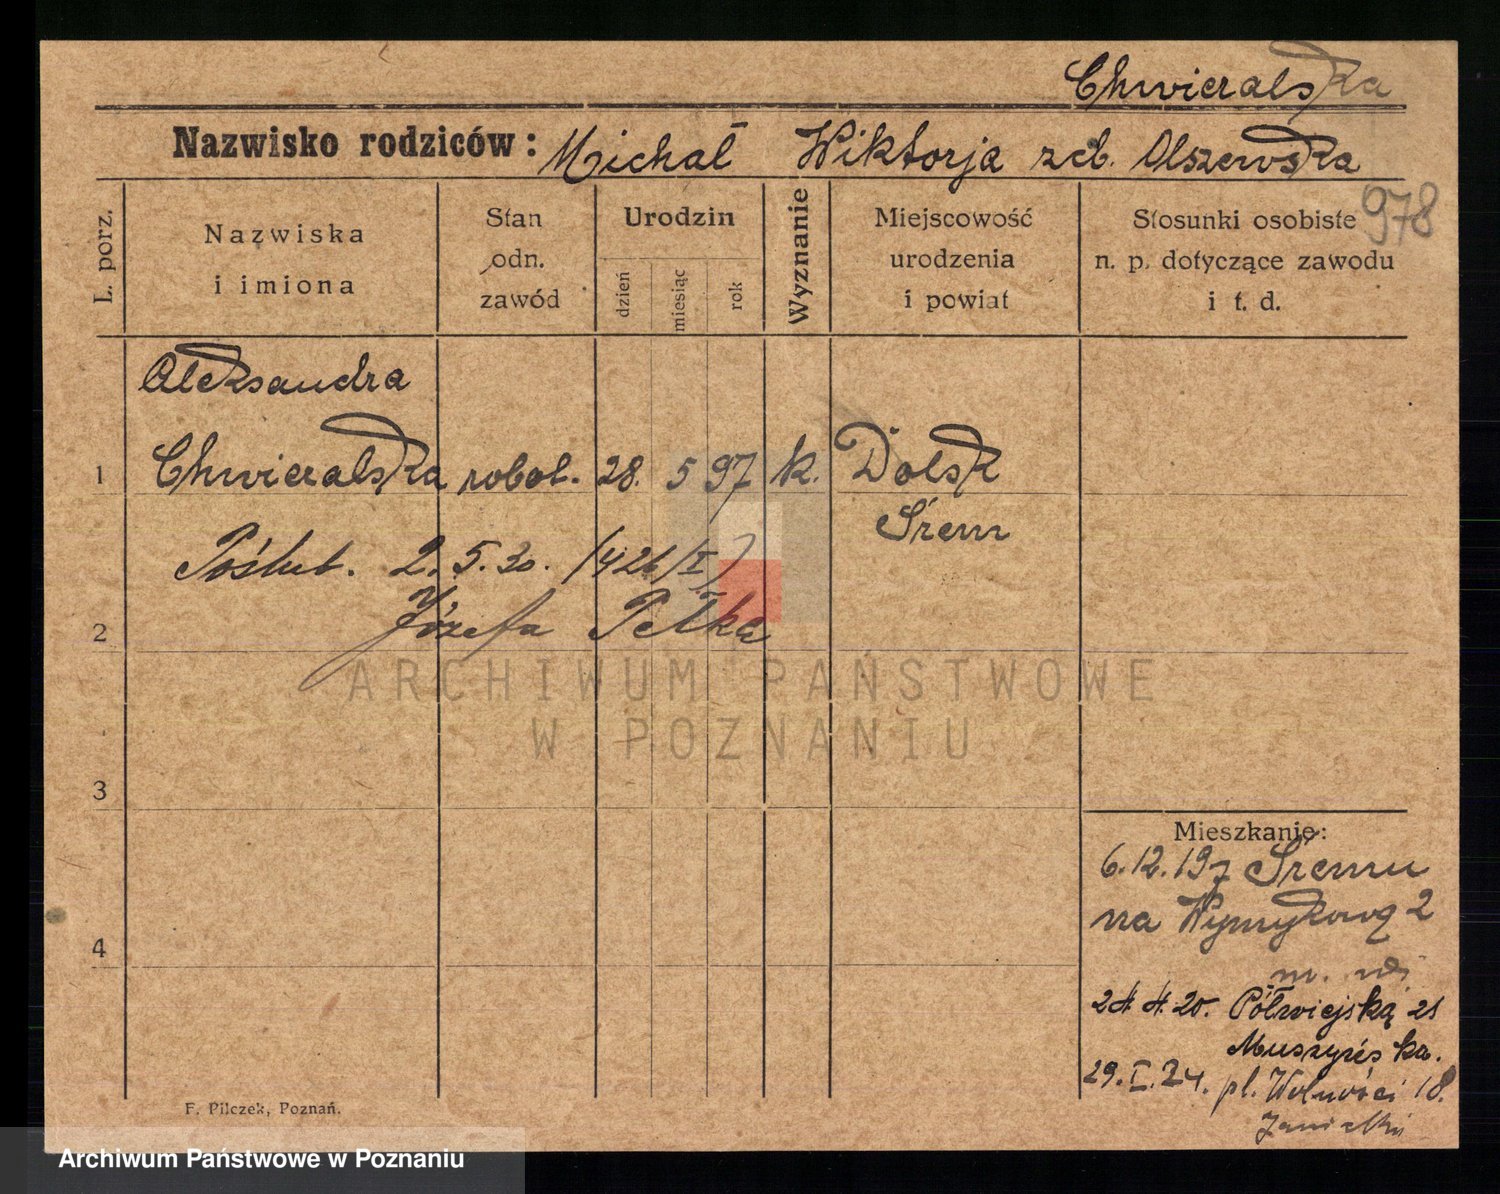 Chwieralska
Nazwisko rodziców: Michał Wiktorja zd. Olszewska
978
L. porz.
Nazwiska
i imiona
Stan
odn.
zawód
Urodzin
dzień
miesiąc
rok
Wyznanie
Miejscowość
urodzenia
i powiat
Stosunki osobiste
n. p. dotyczące zawodu
i t. d.
Aleksandra
1 Chwieralska robot. 28. 5 97 k. Dolsk
Śrem
Poślub. 2. 5. 30. (426/I)
2 Józefa Pełkę
ARCHIWUM PAŃSTWOWE
W POZNANIU
3
Mieszkanie:
6.12.197 Śremu
na Wymykową 2
4
24 4. 20. Półwiejską 21
29. I. 24. pl. Wolności 18.
F. Pilczek, Poznań.
Archiwum Państwowe w Poznaniu